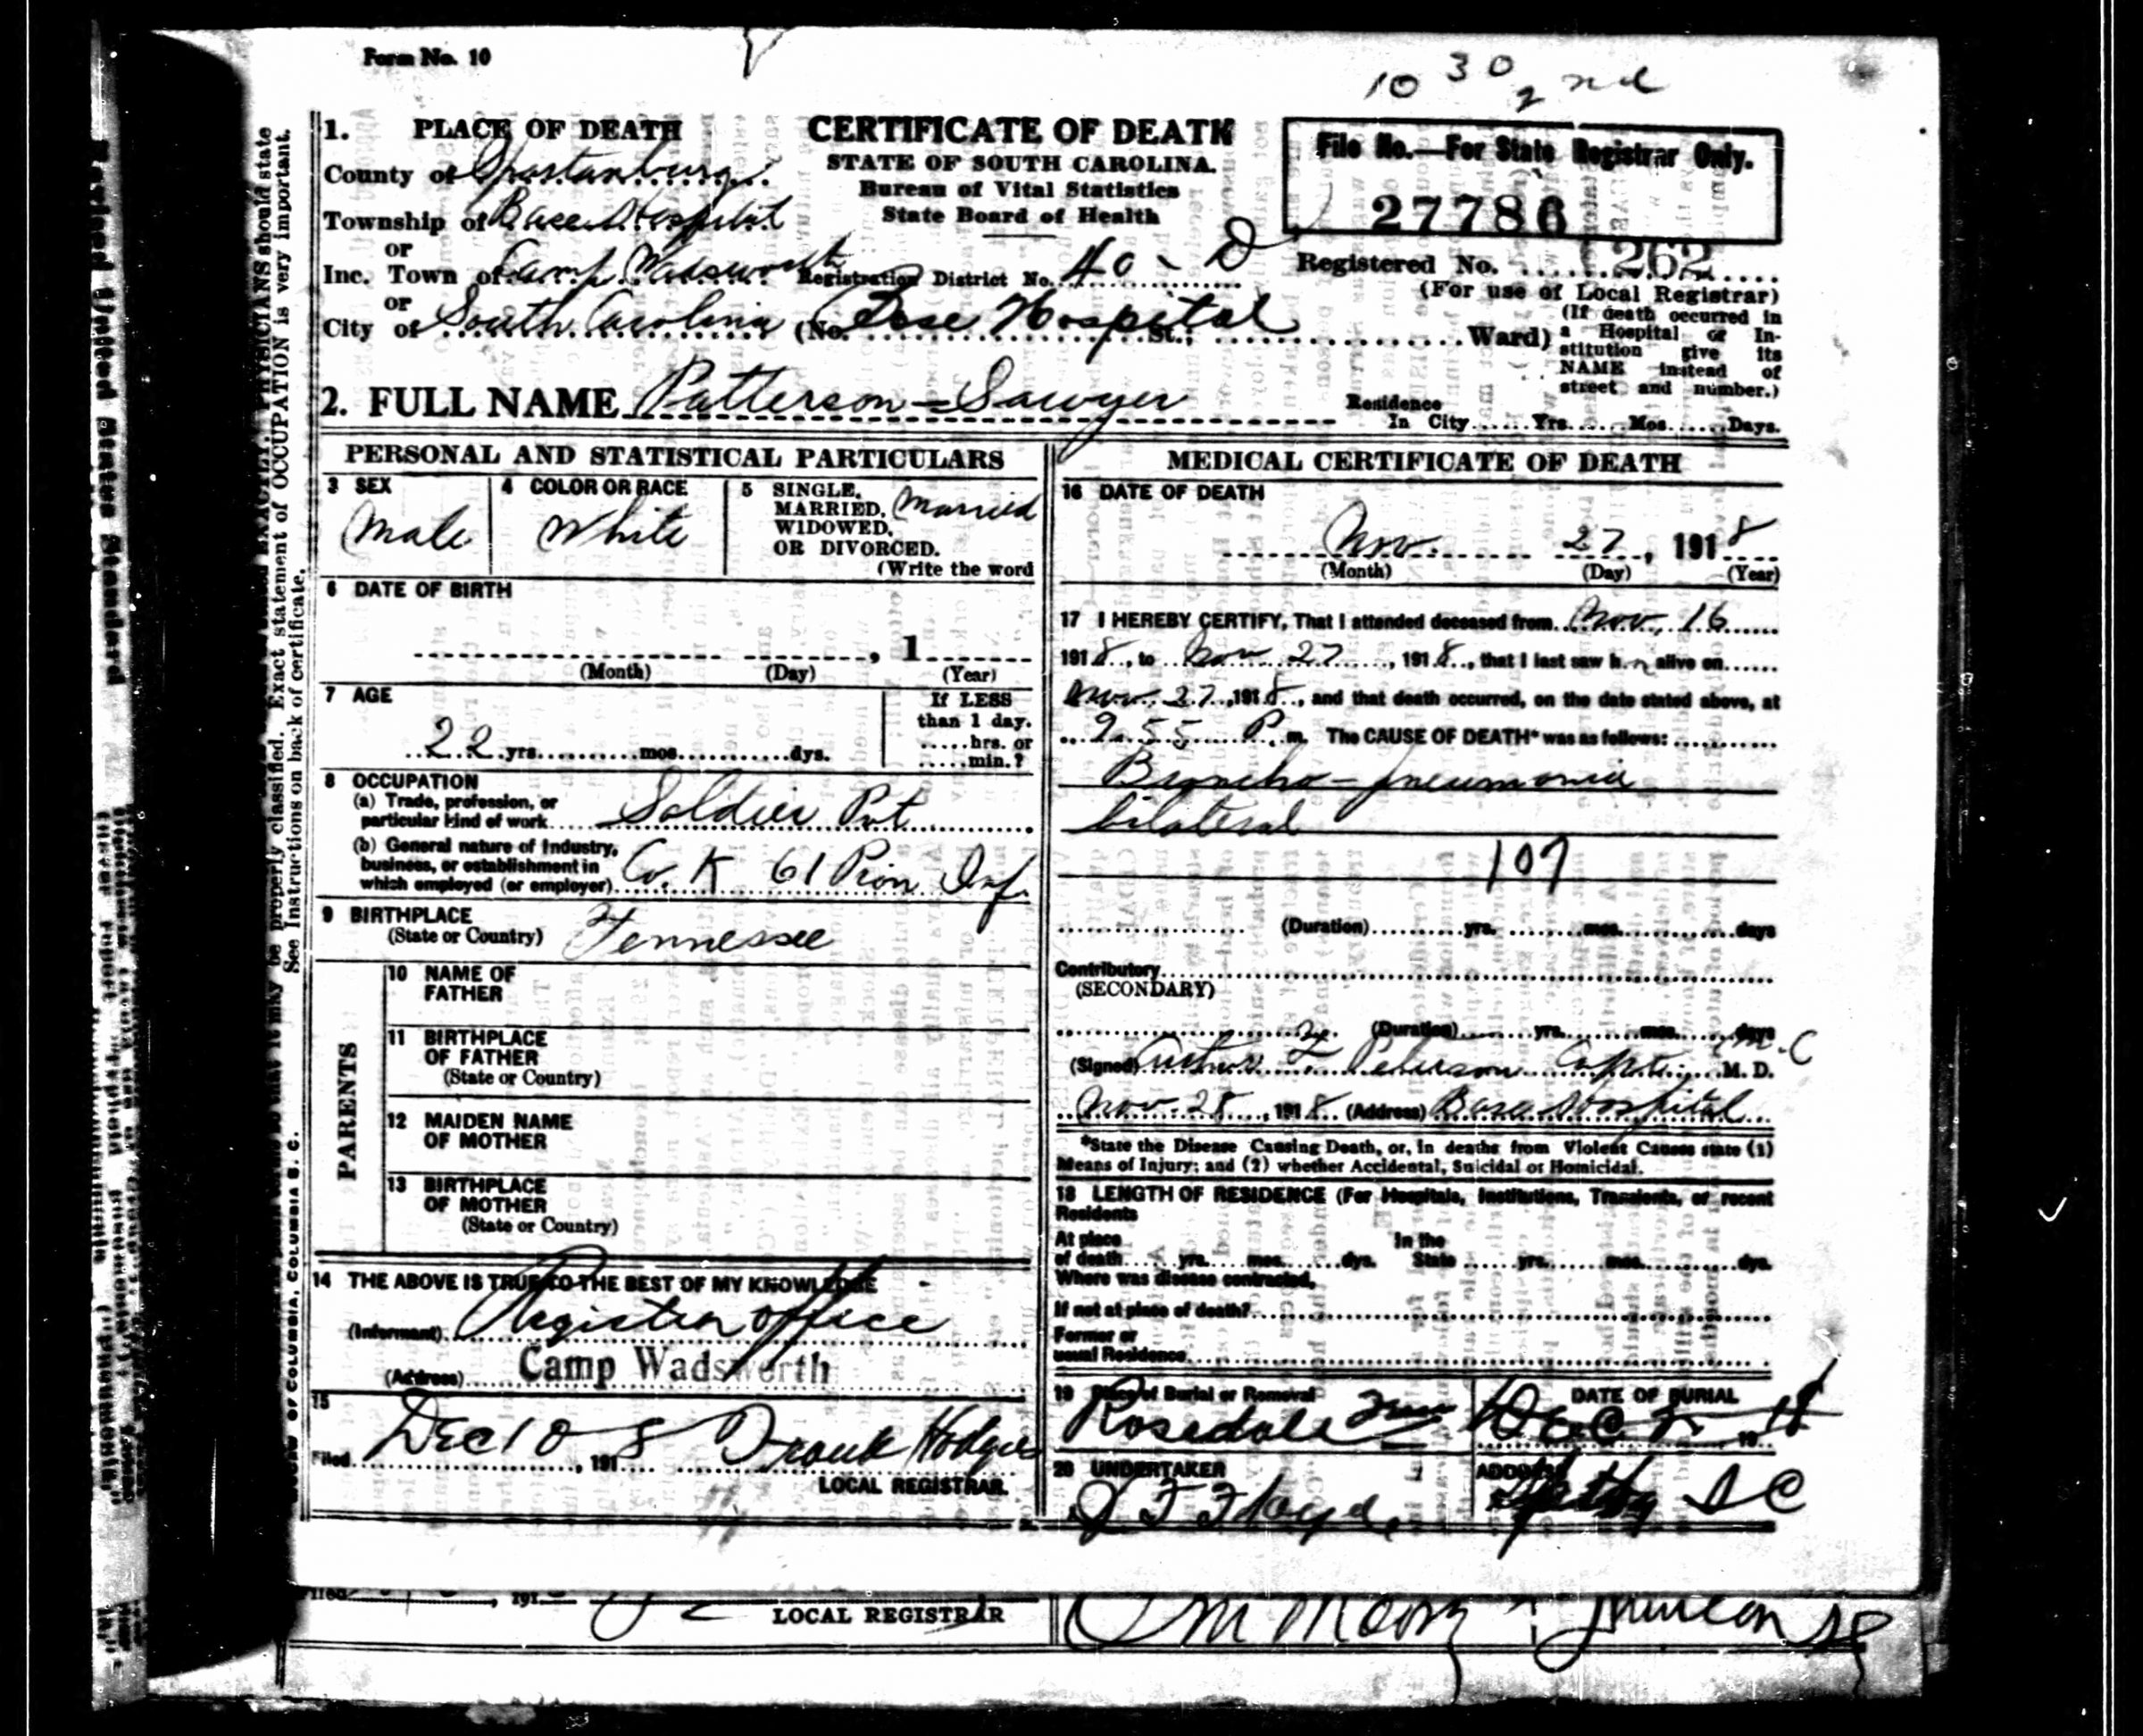 Form No. 10
10 30 2 nd
1. PLACE OF DEATH
County of Spartanburg
Township of Base Hospital
or
Inc. Town of Camp Wadsworth
or
City of South Carolina (No. Base Hospital St.; Ward)
CERTIFICATE OF DEATH
STATE OF SOUTH CAROLINA.
Bureau of Vital Statistics
State Board of Health
Registration District No. 40-D
File No.—For State Registrar Only.
27786
Registered No. 262
(For use of Local Registrar)
(If death occurred in
a Hospital or In-
stitution give its
NAME instead of
street and number.)
2. FULL NAME Patterson-Sawyer
Residence
In City Yrs. Mos. Days.
PERSONAL AND STATISTICAL PARTICULARS
3 SEX
Male
4 COLOR OR RACE
White
5 SINGLE,
MARRIED, Married
WIDOWED,
OR DIVORCED.
(Write the word
6 DATE OF BIRTH
, 1
(Month) (Day) (Year)
7 AGE
22 yrs. mos. dys.
If LESS
than 1 day.
hrs. or
min.?
8 OCCUPATION
(a) Trade, profession, or
particular kind of work Soldier Pvt
(b) General nature of Industry,
business, or establishment in
which employed (or employer) Co. K 61 Pion Inf.
9 BIRTHPLACE
(State or Country) Tennessee
PARENTS
10 NAME OF
FATHER
11 BIRTHPLACE
OF FATHER
(State or Country)
12 MAIDEN NAME
OF MOTHER
13 BIRTHPLACE
OF MOTHER
(State or Country)
14 THE ABOVE IS TRUE TO THE BEST OF MY KNOWLEDGE
(Informant) Register office
(Address) Camp Wadsworth
15
Filed Dec 10, 1918 Frank Hodges
LOCAL REGISTRAR.
MEDICAL CERTIFICATE OF DEATH
16 DATE OF DEATH
Nov. 27, 1918
(Month) (Day) (Year)
17 I HEREBY CERTIFY, That I attended deceased from Nov. 16
1918, to Nov 27, 1918, that I last saw h alive on
Nov. 27, 1918, and that death occurred, on the date stated above, at
9.55 P. m. The CAUSE OF DEATH* was as follows:
Broncho-pneumonia
bilateral
107
(Duration) yrs. mos. days
Contributory
(SECONDARY)
(Duration) yrs. mos. days
(Signed) Arthur F. Peterson Capt. M.C M. D.
Nov. 28, 1918 (Address) Base Hospital
*State the Disease Causing Death, or, in deaths from Violent Causes state (1)
Means of Injury; and (2) whether Accidental, Suicidal or Homicidal.
18 LENGTH OF RESIDENCE (For Hospitals, Institutions, Transients, or recent
Residents
At place In the
of death yrs. mos. dys. State yrs. mos. dys.
Where was disease contracted,
If not at place of death?
Former or
usual Residence
19 Place of Burial or Removal
Rosedale
DATE OF BURIAL
Dec 18
20 UNDERTAKER
J F Floyd
ADDRESS
Sptbg S C
PHYSICIANS should state
be properly classified. Exact statement of OCCUPATION is very important.
See Instructions on back of certificate.
OF COLUMBIA, COLUMBIA S. C.
, 191
LOCAL REGISTRAR